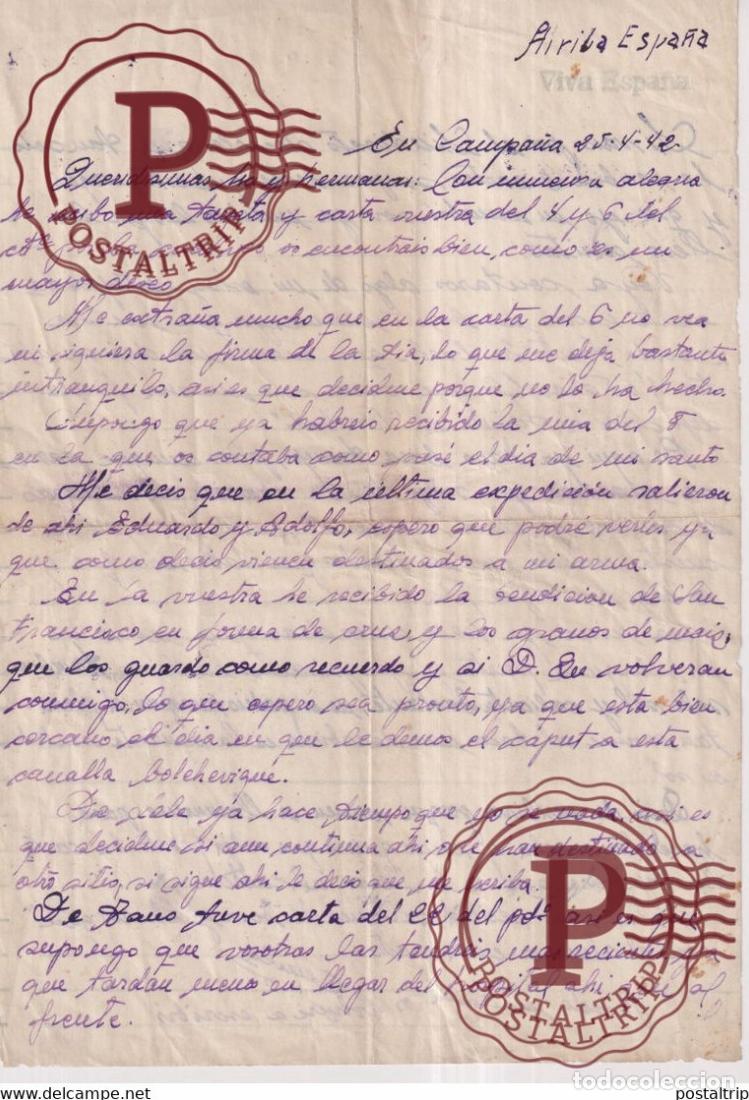 Arriba España
Viva España
En Campaña 25-4-42
Queridísimas tía y hermanas: Con inmensa alegría
he recibo una tarjeta y carta vuestra del 4 y 6 del
cte. os encontrais bien, como es mi
mayor deseo.
Me extraña mucho que en la carta del 6 no vea
ni siquiera la firma de la tia, lo que me deja bastante
intranquilo, asi es que decidme porque no lo ha hecho.
Supongo que ya habreis recibido la mia del 8
en la que os contaba como pasé el dia de mi santo
Me decis que en la última expedición salieron
de ahi Eduardo y Adolfo, espero que podré verles ya
que como decis vienen destinados a mi arma.
En la vuestra he recibido la bendicion de San
Francisco en forma de cruz y los granos de maiz,
que los guardo como recuerdo y si D. Qu volveran
conmigo, lo que espero sea pronto, ya que esta bien
cercano el dia en que le demos el caput a esta
canalla bolchevique.
De ya hace tiempo que no se nada, asi es
que decidme si aun continua ahi o le han destinado a
otro sitio, si sigue ahi le decis que me escriba.
De tuve carta del 22 del pdo. asi es que
supongo que vosotras las tendreis mas recientes ya
que tardan menos en llegar del hospital ahi, que al
frente.
POSTALTRIP
POSTALTRIP
POSTALTRIP
todocoleccion
www.todocoleccion.net
postaltrip